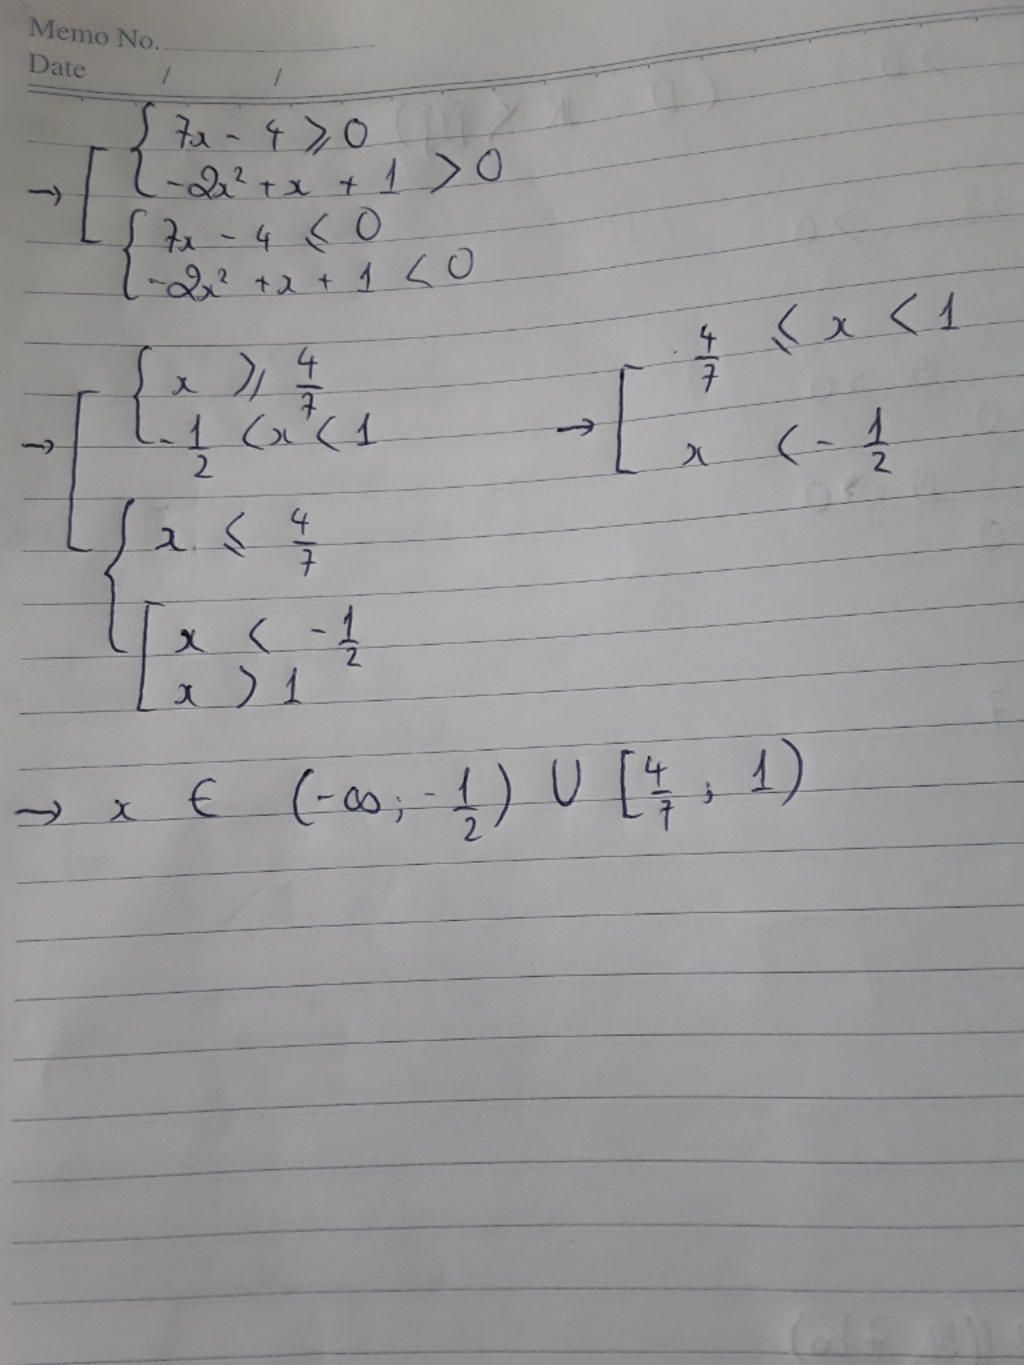 Memo No.
Date / /
→ [ { 7x - 4 ⩾ 0
-2x² + x + 1 > 0
{ 7x - 4 ⩽ 0
-2x² + x + 1 < 0
→ [ { x ⩾ 4/7
-1/2 < x < 1
{ x ⩽ 4/7
[ x < -1/2
x > 1
→ [ 4/7 ⩽ x < 1
x < -1/2
→ x ∈ (-∞; -1/2) ∪ [4/7; 1)